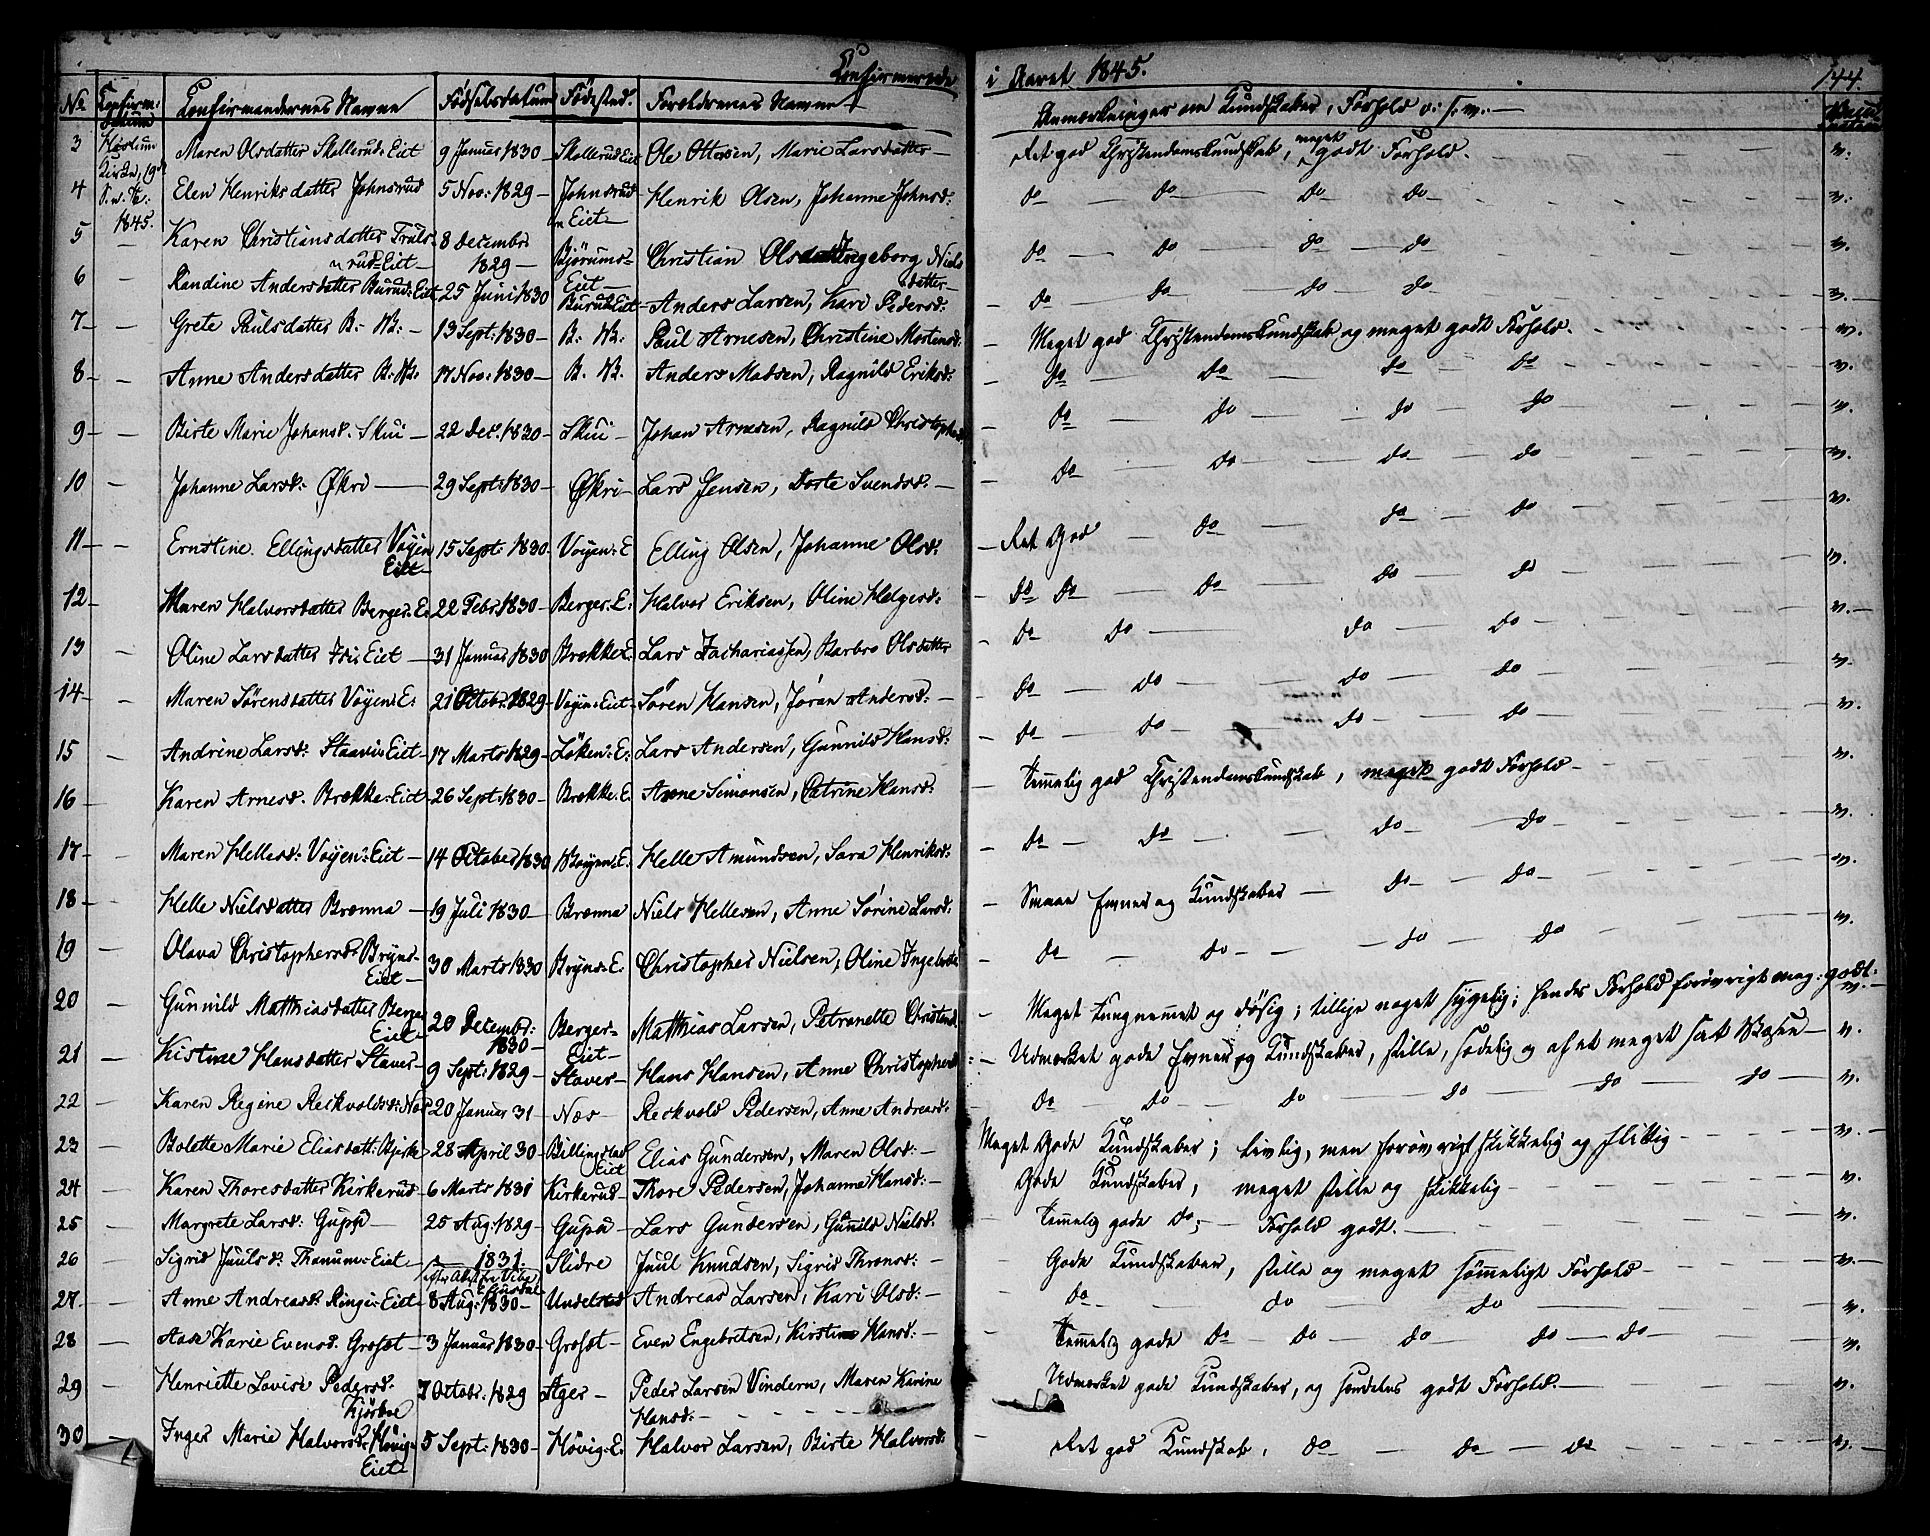 Confirmerede
i Aaret 1845.
144.
No Confirm: Datum Confirmandernes Navne Fødselsdatum Fødested. Forældrenes Navne Anmærkninger om Kundskaber, Forhold o: s: v:
3 Haslum Kirke, 19de S. 1845. Maren Olsdatter Skollerud: Eiet 9 Januar 1830 Skollerud Eiet Ole Ottersen, Marie Larsdatter Ret god Christendomskundskab, meget godt Forhold. v:
4 Elen Henriksdatter Johnsrud 5 Nov: 1829 Johnsrud Eiet Henrik Olsen, Johanne Johnsd: do do do do v:
5 Karen Christiansdatter Trulsrud: Eiet 8 Decembr 1829 Bjørums: Eiet Christian Ols Ingeborg Nielsdatter do do do do v.
6 Randine Andersdatter Burud: Eiet 25 Juni 1830 Burud: Eiet Anders Larsen, Kari Pedersd: do do do do v.
7 Grete Paulsdatter B: V: 13 Sept: 1830 B: V: Paul Arnesen, Christine Mortensd: Meget god Christendomskundskab og meget godt Forhold. v.
8 Anne Andersdatter B: V: 17 Nov: 1830 B. V. Anders Madsen, Ragnild Eriksd: do do do do v.
9 Birte Marie Johansd. Skui 22 Dec. 1830 Skui Johan Arnesen, Ragnild Christophersd do do do do v.
10 Johanne Larsd: Økri 29 Sept: 1830 Økri Lars Jensen, Dorte Svendsd: do do do do v.
11 Ernstine Ellingsdatter Vøyen Eiet 15 Sept: 1830 Vøyen: E Elling Olsen, Johanne Olsd: Ret God do do do v.
12 Maren Halvorsdatter Berger: E: 22 Febr: 1830 Berger: E: Halvor Eriksen, Oline Helgesd: do do do do do v.
13 Oline Larsdatter Eiet 31 Januar 1830 Brække: E. Lars Zachariassen, Barbro Olsdatter do do do do v.
14 Maren Sørensdatter Vøyen: E: 21 Octobr: 1829 Vøyen: Eiet Søren Hansen, Jøran Andersd: do do do do v.
15 Andrine Larsd: Staavi: Eiet 17 Marts 1829 Løken: E: Lars Andersen, Gunnild Hansd: do do do do v.
16 Karen Arnesd. Brække: Eiet 26 Sept: 1830 Brække: E. Arne Simonsen, Catrine Hansd: Temmelig god Christendomskundskab, meget godt Forhold v.
17 Maren Hellesd: Vøyen: Eiet 14 October 1830 Vøyen: E: Helle Amundsen, Sara Henriksd: do do do do v.
18 Helle Nielsdatter Brænna 19 Juli 1830 Brænna Niels Hellesen, Anne Sørine Larsd: Smaae Evner og Kundskaber do do v.
19 Olava Christophersd: Bryns- Eiet 30 Marts 1830 Bryns: E: Christopher Nielsen, Oline Ingebr do do do do v.
20 Gunnild Matthiasdatter Berger Eiet 20 Decembr: 1830 Berger- Eiet Matthias Larsen, Petronelle Christensd Meget tungnemmet og døsig; tillige noget sygelig; hendes Forhold forøvrigt meg: godt. v.
21 Kistine Hansdatter Staver 9 Sept: 1829 Staver Hans Hansen, Anne Christophersd: Udmærket gode Evner og Kundskaber, stille, sædelig og af et meget sat Væsen v.
22 Karen Regine Reckvoldsd: Næs 20 Januar 31 Næs Reckvold Pedersen, Anne Andreasd: do do do do do do v.
23 Bolette Marie Eliasdatt: Bjerke 28 April 30 Billingstad Eiet Elias Gundersen, Maren Olsd: Meget Gode Kundskaber; livlig, men forøvrigt skikkelig og flittig v.
24 Karen Thoresdatter Kirkerud 6 Marts 1831 Kirkerud Thore Pedersen, Johanne Hansd: Gode Kundskaber, meget stille og skikkelig v.
25 Margrete Larsd: Gupu 25 Aug: 1829 Gupu Lars Gundersen, Gunnild Nielsd. Temmelig gode do; Forhold godt. v.
26 Sigrid Juulsd: Thanum: Eiet 1831. Slidre Juul Knudsen, Sigrid Thronds: Gode Kundskaber, stille og meget sømmeligt Forhold v.
27 Anne Andreasd: Ringi: Eiet 8 Aug: 1830 Undelstad Andreas Larsen, Kari Olsd: do do do v.
28 Aase Karie Evensd. Grosæt 3 Januar 1830 Grosæt Even Engebretsen, Kirstine Hansd: Temmelig gode do do do do do v.
29 Henriette Lovise Pedersd. Kjørboe 7 Octobr: 1829 Ager Peder Larsen Vindern, Maren Karine Hansd: Udmærket gode Kundskaber, og særdeles godt Forhold. v.
30 Inger Marie Halvorsd: Høvig: Eiet 5 Sept: 1830 Høvig: E: Halvor Larsen, Birte Halvorsd: Ret god Kundskab, do do do v.